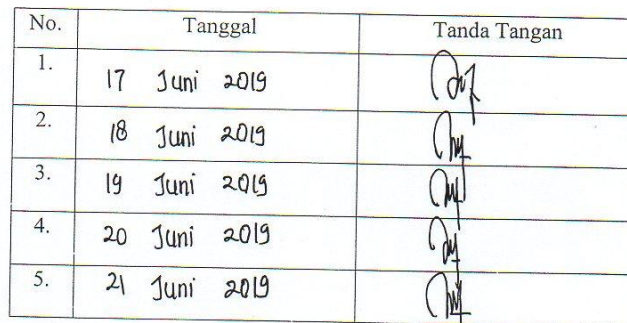 No. Tanggal Tanda Tangan
1. 17 Juni 2019
2. 18 Juni 2019
3. 19 Juni 2019
4. 20 Juni 2019
5. 21 Juni 2019